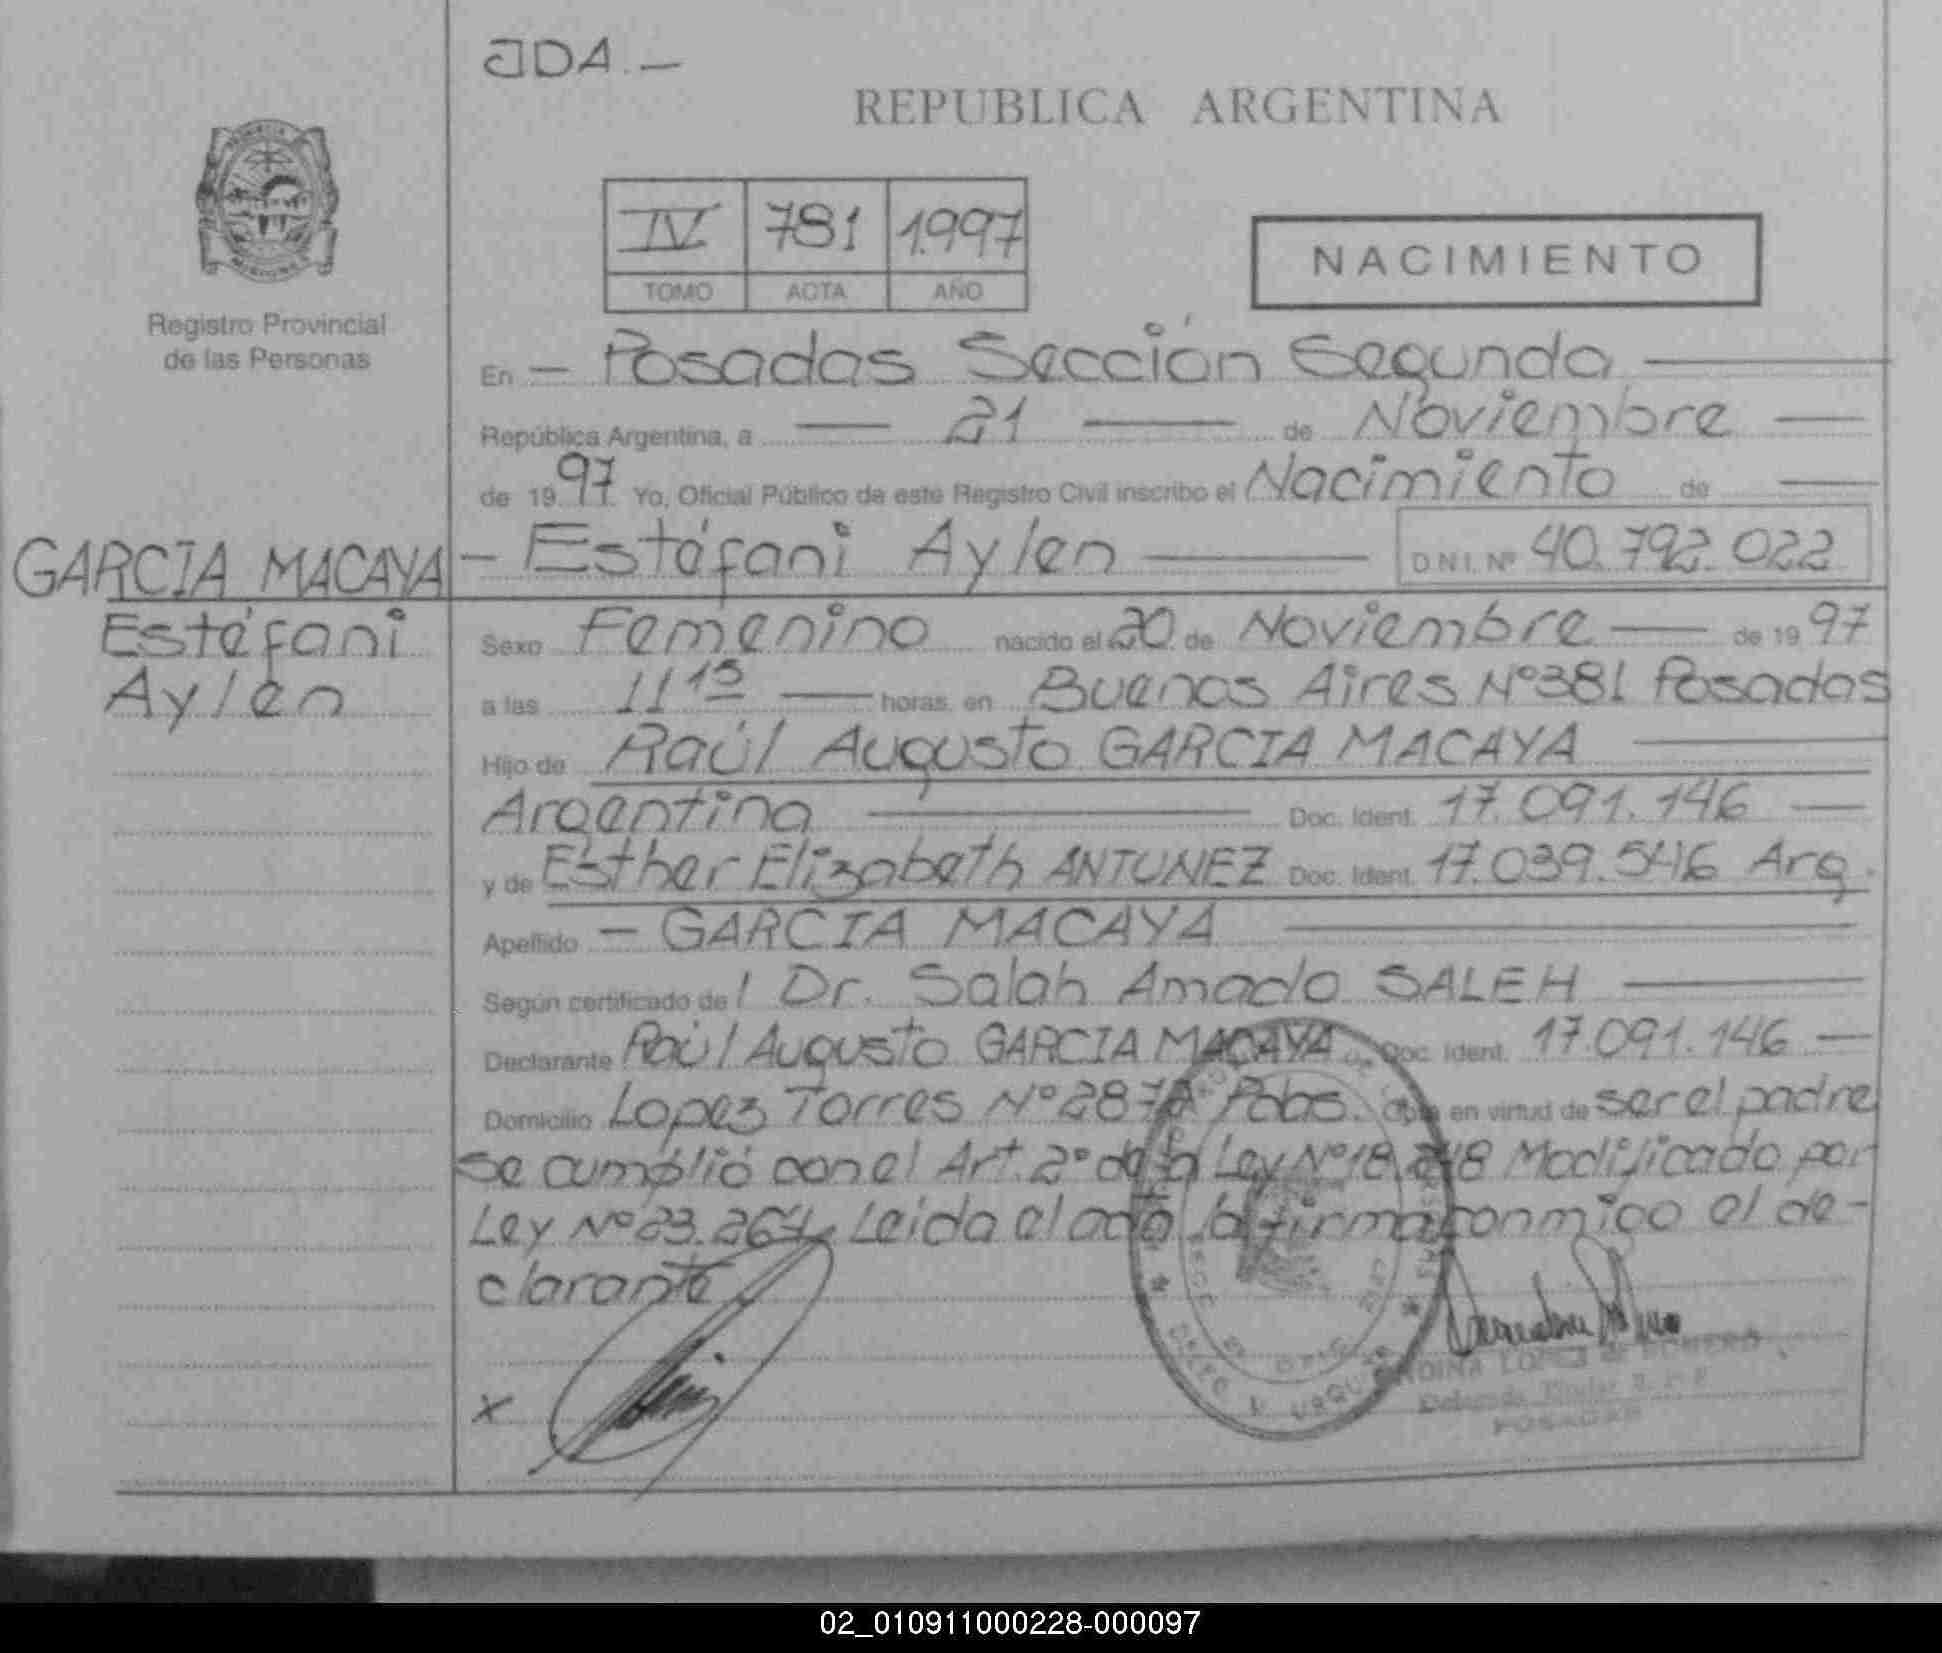 JDA.—
REPUBLICA ARGENTINA
IV 781 1.997
TOMO ACTA AÑO
NACIMIENTO
Registro Provincial
de las Personas
En — Posadas Sección Segunda —
República Argentina, a — 21 — de Noviembre —
de 1997 Yo, Oficial Público de este Registro Civil inscribo el Nacimiento de —
— Estéfani Aylen — D.N.I. Nº 40.792.022
GARCIA MACAYA
Estéfani
Aylen
Sexo Femenino nacido el 20 de Noviembre — de 1997
a las 11 15 — horas, en Buenos Aires Nº381 Posadas
Hijo de Raúl Augusto GARCIA MACAYA —
Argentina — Doc. Ident. 17.091.146 —
y de Esther Elizabeth ANTUNEZ Doc. Ident. 17.039.546 Arg.
Apellido — GARCIA MACAYA —
Según certificado de l Dr. Salah Amado SALEH —
Declarante Raúl Augusto GARCIA MACAYA Doc. Ident. 17.091.146 —
Domicilio Lopez Torres Nº Pdas. en virtud de ser el padre
se cumplió con el Art. 2º de la Ley Nº18.248 Modificado por
Ley Nº23.264. Leida el acta la firma conmigo el de-
clarante
x
LOPEZ de ROMERO
Delegada Titular R. P. P.
POSADAS
02_010911000228-000097